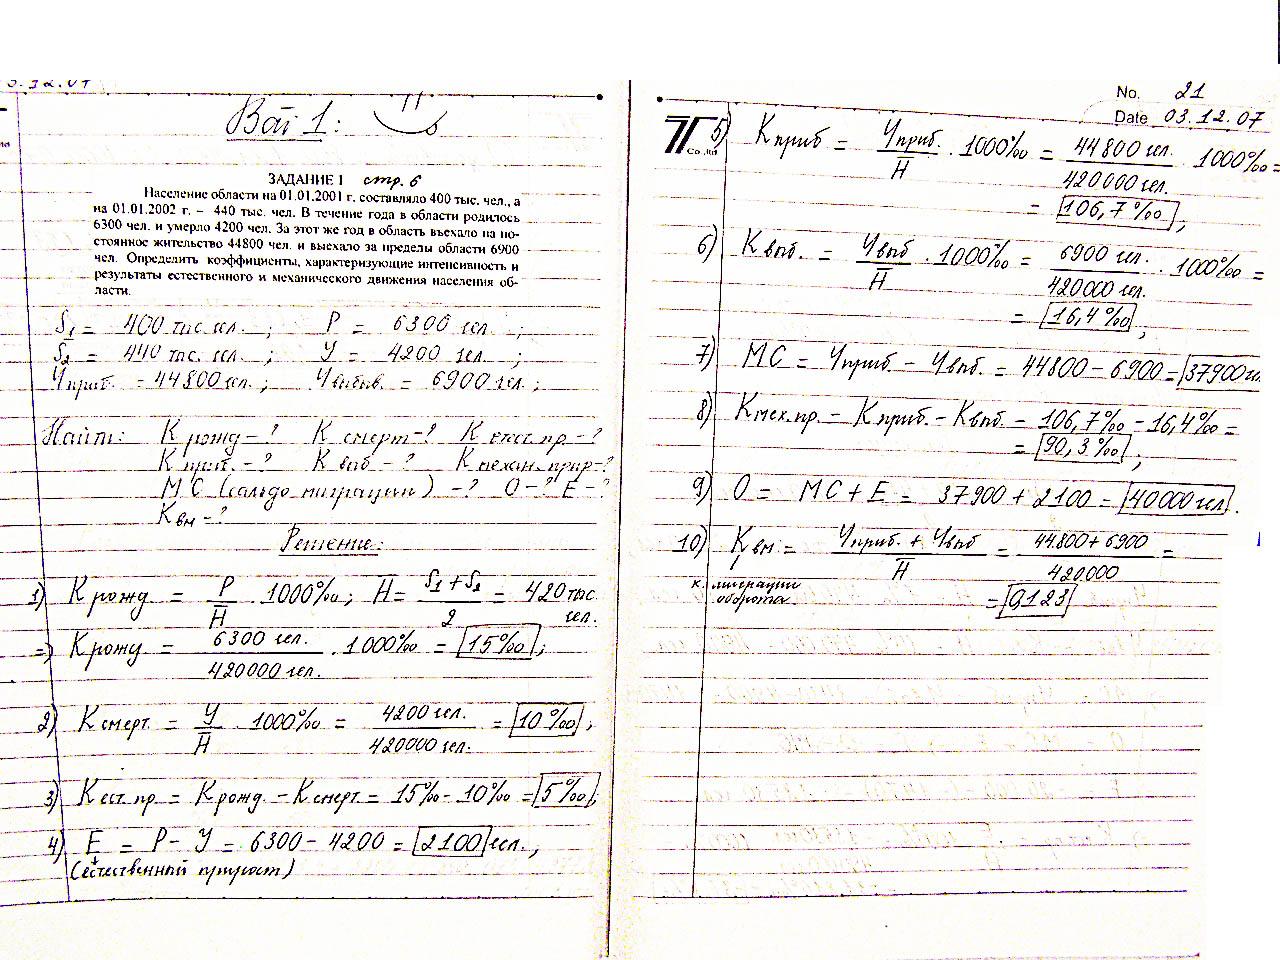 Вар 1:
ЗАДАНИЕ 1 стр. 6
Население области на 01.01.2001 г. составляло 400 тыс. чел., а
на 01.01.2002 г. – 440 тыс. чел. В течение года в области родилось
6300 чел. и умерло 4200 чел. За этот же год в область въехало на по-
стоянное жительство 44800 чел. и выехало за пределы области 6900
чел. Определить коэффициенты, характеризующие интенсивность и
результаты естественного и механического движения населения об-
ласти.
S1 = 400 тыс. чел. ; P = 6300 чел. ;
S2 = 440 тыс. чел. ; У = 4200 чел. ;
Чприб. = 44800 чел. ; Чвыбыв. = 6900 чел. ;
Найти: К рожд - ? К смерт - ? К ест. пр. - ?
К приб. - ? К выб. - ? К механ. прир - ?
МС (сальдо миграции) - ? О - ? Е - ?
Квм - ?
Решение:
1) К рожд = P/H̅ · 1000‰ ; H̅ = (S1 + S2)/2 = 420 тыс. чел.
=> К рожд = 6300 чел./420000 чел. · 1000‰ = 15‰ ;
2) К смерт. = У/H̅ · 1000‰ = 4200 чел./420000 чел. = 10‰ ;
3) К ест. пр. = К рожд. - К смерт. = 15‰ - 10‰ = 5‰ ;
4) Е = P - У = 6300 - 4200 = 2100 чел. ;
(естественный прирост)
No. 21
Date 03.12.07
Co.,ltd
5) К приб = Чприб./H̅ · 1000‰ = 44800 чел./420000 чел. · 1000‰ =
= 106,7‰ ;
6) К выб. = Чвыб/H̅ · 1000‰ = 6900 чел./420000 чел. · 1000‰ =
= 16,4‰ ;
7) МС = Чприб - Чвыб. = 44800 - 6900 = 37900 че
8) К мех. пр. = К приб - К выб. = 106,7‰ - 16,4‰ =
= 90,3‰ ;
9) О = МС + Е = 37900 + 2100 = 40000 чел .
10) Квм = (Чприб. + Чвыб)/H̅ = (44800 + 6900)/420000 =
к. миграции
оборота.
= 0,123